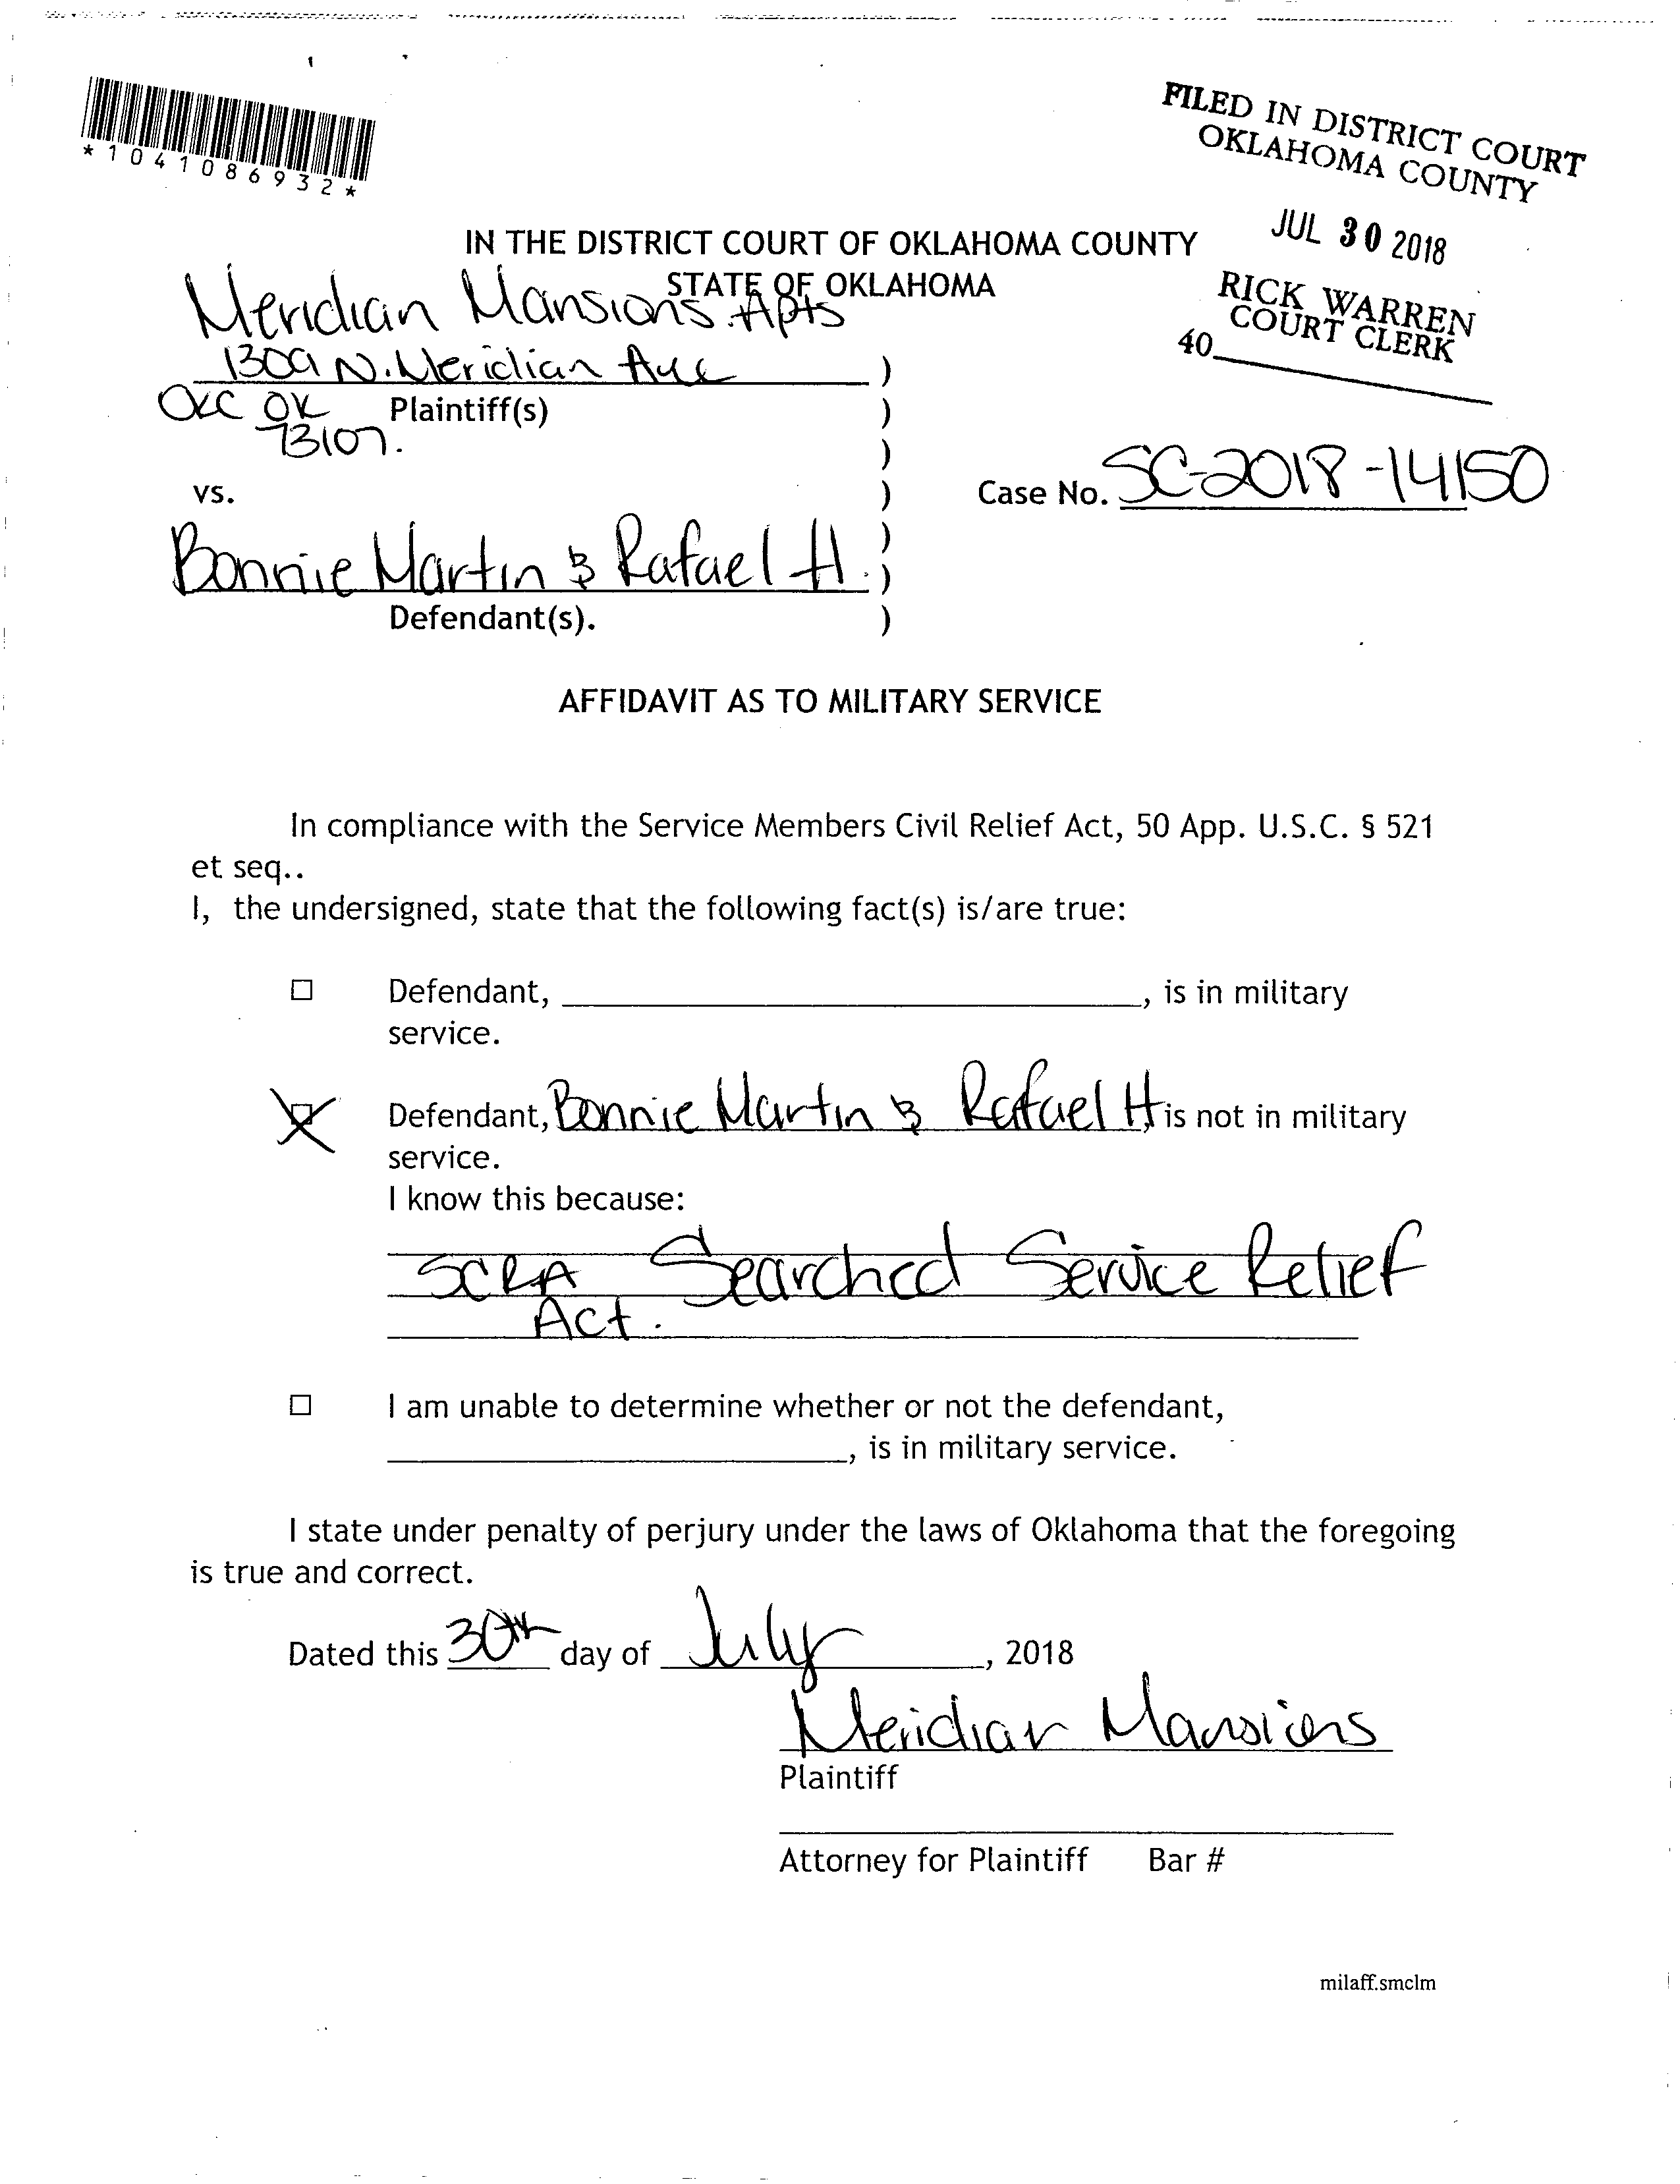 *1041086932*
FILED IN DISTRICT COURT
OKLAHOMA COUNTY
JUL 30 2018
RICK WARREN
COURT CLERK
40
IN THE DISTRICT COURT OF OKLAHOMA COUNTY
STATE OF OKLAHOMA
Meridian Mansions Apts
1309 N. Meridian Ave )
OKC OK Plaintiff(s) )
73107. )
vs. )
Case No. SC-2018-14150
)
Bonnie Martin & Rafael H. )
Defendant(s). )
AFFIDAVIT AS TO MILITARY SERVICE
In compliance with the Service Members Civil Relief Act, 50 App. U.S.C. § 521
et seq..
I, the undersigned, state that the following fact(s) is/are true:
☐ Defendant, ____________________, is in military
service.
☒ Defendant, Bonnie Martin & Rafael H, is not in military
service.
I know this because:
SCRA Searched Service Relief
Act.
☐ I am unable to determine whether or not the defendant,
____________________, is in military service.
I state under penalty of perjury under the laws of Oklahoma that the foregoing
is true and correct.
Dated this 30th day of July, 2018
Meridian Mansions
Plaintiff
Attorney for Plaintiff Bar #
milaff.smclm